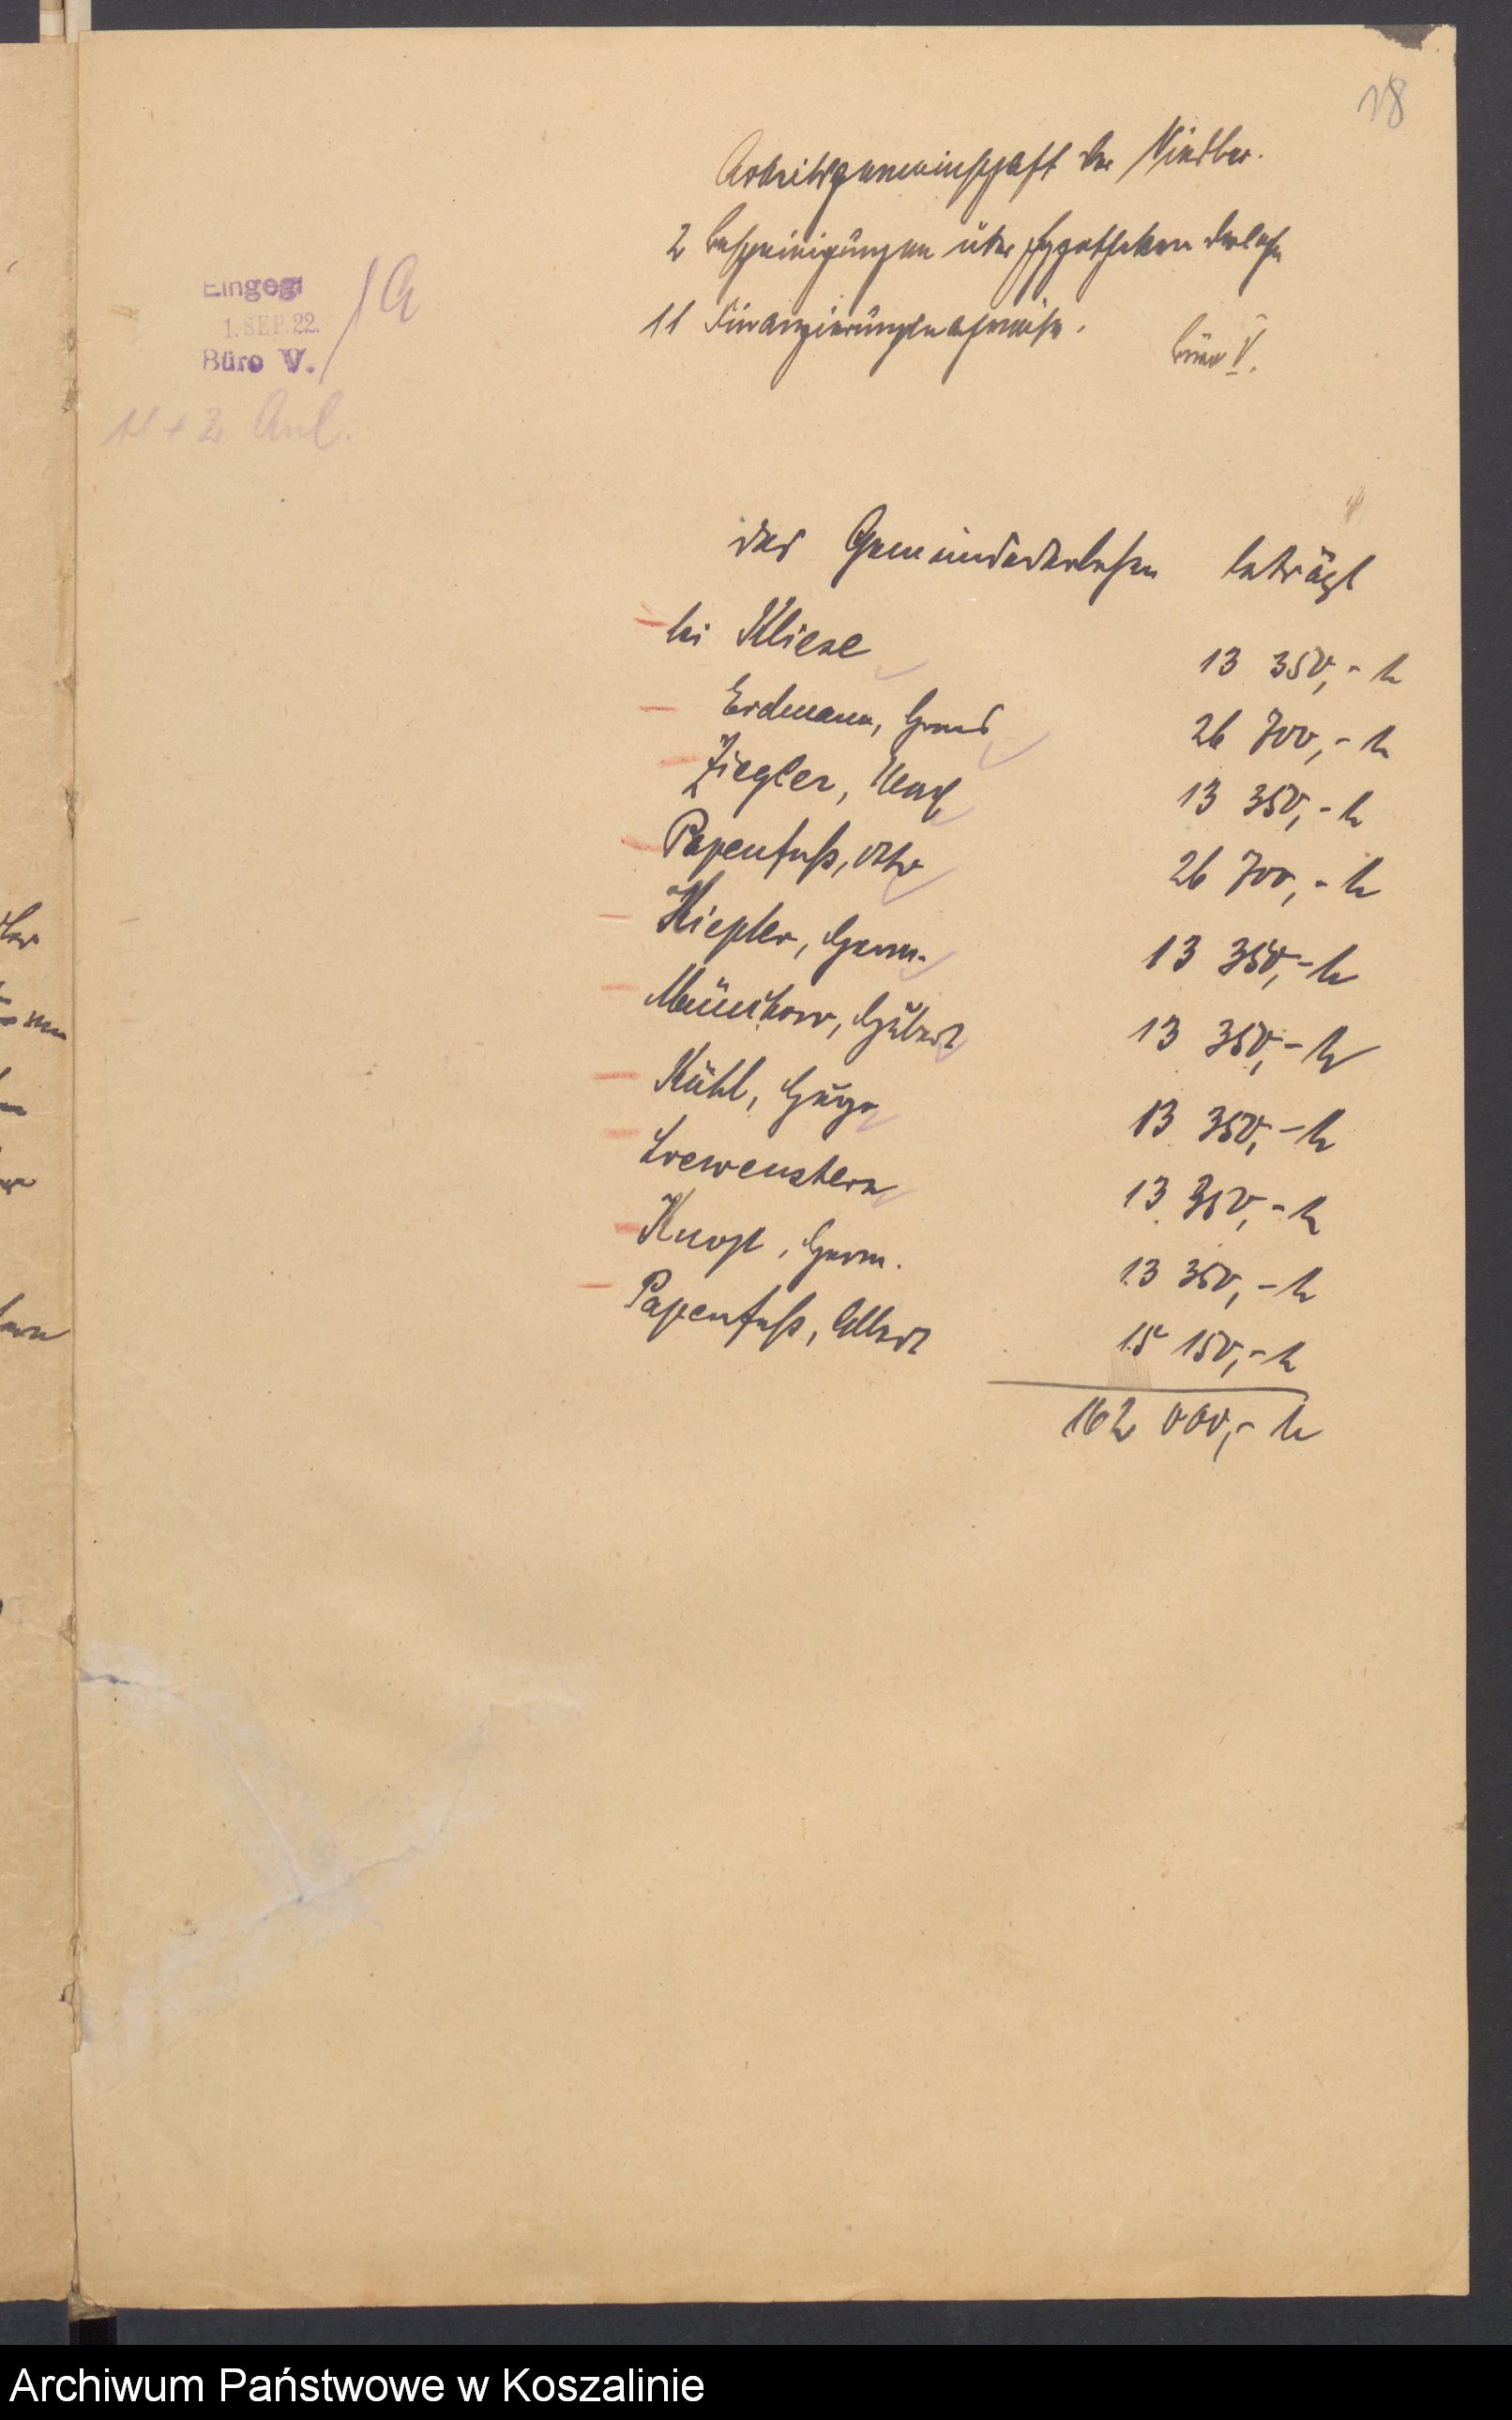 18
Arbeitsgemeinschaft der
2 Bescheinigungen über Hypotheken Darlehn
11 Finanzierungsnachweise.
Büro V.
Eingeg
1. SEP. 22.
Büro V.
11 + 2 Anl.
das Gemeindedarlehen beträgt
bei Kliese 13 350,- M
Erdmann, 26 700,- M
Ziegler, 13 350,- M
Papenfuß, Otto 26 700,- M
Kiepler, Herm. 13 350,- M
Münchow, Hubert 13 350,- M
Kühl, Hugo 13 350,- M
Loewenstern 13 350,- M
Knopf, Herm. 13 350,- M
Papenfuß, Albert 15 150,- M
162 000,- M
Archiwum Państwowe w Koszalinie